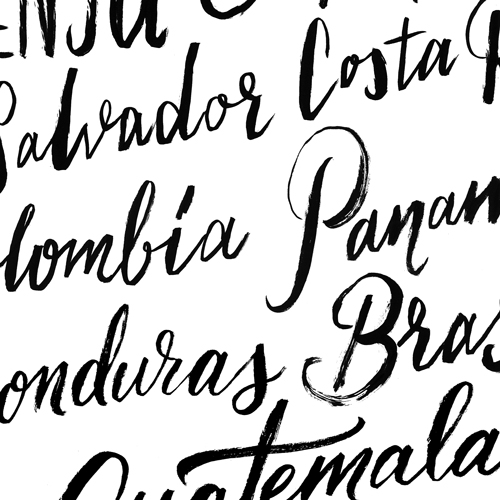 Salvador Costa R
olombía Panam
onduras Bras
Guatemala